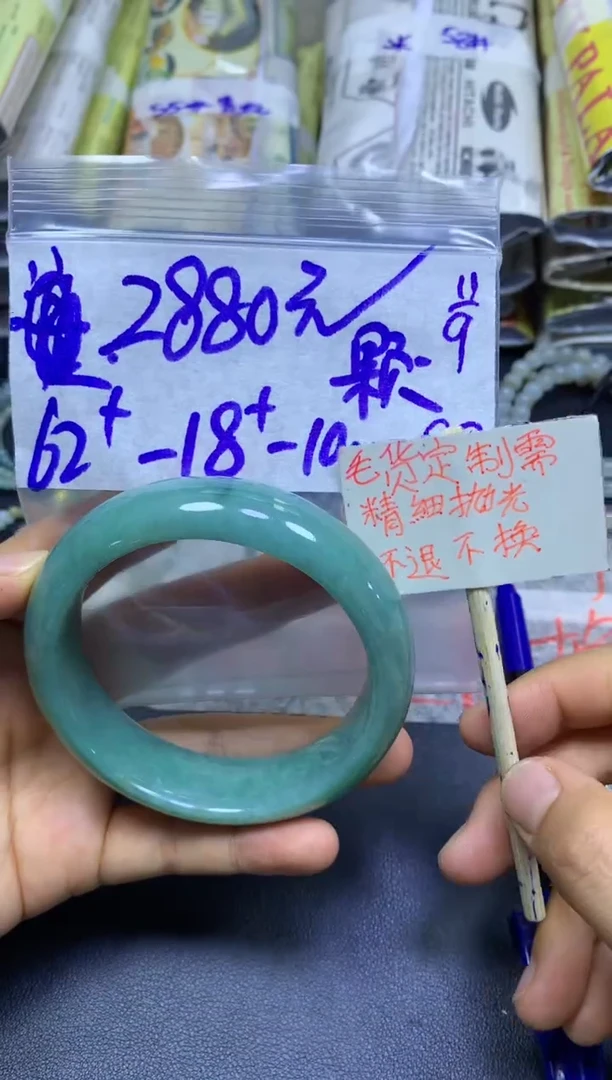 2880元/
颗
11/9
62+-18+-10
毛货定制需
精細抛光
不退不换